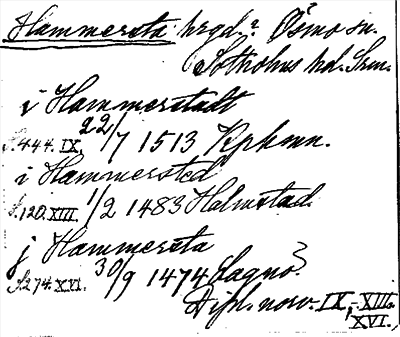 Hammersta hrgd? Ösmo sn.
Sotholms hd. Srm.
i Hammerstadt
S. 444. IX. 22/7 1513 Kphmn.
i Hammersted
S. 120. XIII. 1/2 1483 Halmstad.
j Hammersta
S. 274. XVI. 30/9 1474 Lagnö.
Dipl. norv. IX, XIII, XVI.